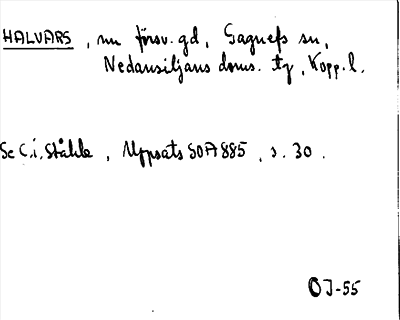 HALVARS, nu försv. gd, Gagnefs sn,
Nedansiljans doms. tg, Kopp. l.
Se C.i. Ståhle, Uppsats SOA 885, s. 30.
OJ-55